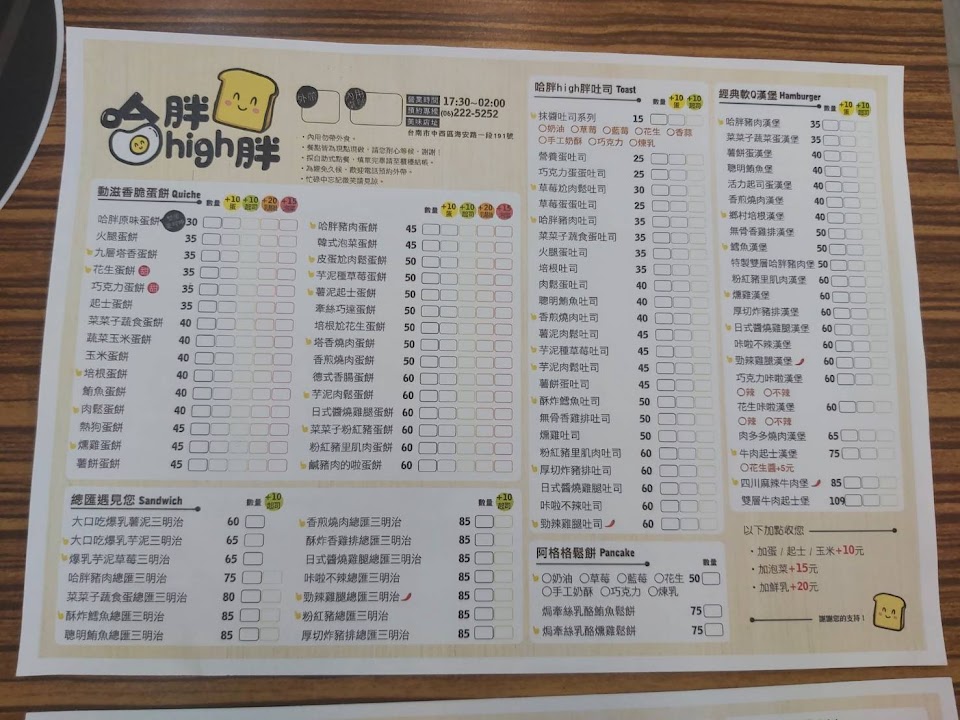 哈胖
high胖
外帶
內用
營業時間 17:30~02:00
預約專機 (06)222-5252
美味店址
台南市中西區海安路一段191號
・內用勿帶外食。
・餐點皆為現點現做，請您耐心等候，謝謝！
・採自助式點餐，填單完畢請至櫃檯結帳。
・為避免久候，歡迎電話預約外帶。
・忙碌中忘記微笑請見諒。
動滋香脆蛋餅 Quiche
+10蛋 +10起司 +20 +15
哈胖原味蛋餅 30
火腿蛋餅 35
九層塔香蛋餅 35
花生蛋餅 甜 35
巧克力蛋餅 甜 35
起士蛋餅 35
菜菜子蔬食蛋餅 40
蔬菜玉米蛋餅 40
玉米蛋餅 40
培根蛋餅 40
鮪魚蛋餅 40
肉鬆蛋餅 40
熱狗蛋餅 45
燻雞蛋餅 45
薯餅蛋餅 45
數量 +10蛋 +10起司 +20 +15
哈胖豬肉蛋餅 45
韓式泡菜蛋餅 45
皮蛋尬肉鬆蛋餅 50
芋泥種草莓蛋餅 50
薯泥起士蛋餅 50
牽絲巧達蛋餅 50
培根尬花生蛋餅 50
塔香燒肉蛋餅 50
香煎燒肉蛋餅 50
德式香腸蛋餅 60
芋泥肉鬆蛋餅 60
日式醬燒雞腿蛋餅 60
菜菜子粉紅豬蛋餅 60
粉紅豬里肌肉蛋餅 60
鹹豬肉的啦蛋餅 60
總匯遇見您 Sandwich
數量 +10起司
大口吃爆乳薯泥三明治 60
大口吃爆乳芋泥三明治 65
爆乳芋泥草莓三明治 65
哈胖豬肉總匯三明治 75
菜菜子蔬食蛋總匯三明治 80
酥炸鱈魚總匯三明治 85
聰明鮪魚總匯三明治 85
數量 +10起司
香煎燒肉總匯三明治 85
酥炸香雞排總匯三明治 85
日式醬燒雞腿總匯三明治 85
咔啦不辣總匯三明治 85
勁辣雞腿總匯三明治 85
粉紅豬總匯三明治 85
厚切炸豬排總匯三明治 85
哈胖high胖吐司 Toast
數量 +10蛋 +10起司
抹醬吐司系列 15
○奶油 ○草莓 ○藍莓 ○花生 ○香蒜
○手工奶酥 ○巧克力 ○煉乳
營養蛋吐司 25
巧克力蛋蛋吐司 25
草莓尬肉鬆吐司 30
草莓蛋蛋吐司 25
哈胖豬肉吐司 35
菜菜子蔬食蛋吐司 35
火腿蛋吐司 35
培根吐司 35
肉鬆蛋吐司 40
聰明鮪魚吐司 40
香煎燒肉吐司 40
薯泥肉鬆吐司 45
芋泥種草莓吐司 45
芋泥肉鬆吐司 45
薯餅蛋吐司 45
酥炸鱈魚吐司 50
無骨香雞排吐司 50
燻雞吐司 50
粉紅豬里肌肉吐司 60
厚切炸豬排吐司 60
日式醬燒雞腿吐司 60
咔啦不辣吐司 60
勁辣雞腿吐司 60
阿格格鬆餅 Pancake
數量
○奶油 ○草莓 ○藍莓 ○花生 50
○手工奶酥 ○巧克力 ○煉乳
焗牽絲乳酪鮪魚鬆餅 75
焗牽絲乳酪燻雞鬆餅 75
經典軟Q漢堡 Hamburger
數量 +10蛋 +10起司
哈胖豬肉漢堡 35
菜菜子蔬菜蛋漢堡 35
薯餅蛋漢堡 40
聰明鮪魚堡 40
活力起司蛋漢堡 40
香煎燒肉漢堡 40
鄉村培根漢堡 40
無骨香雞排漢堡 50
鱈魚漢堡 50
特製雙層哈胖豬肉堡 50
粉紅豬里肌肉漢堡 60
燻雞漢堡 60
厚切炸豬排漢堡 60
日式醬燒雞腿漢堡 60
咔啦不辣漢堡 60
勁辣雞腿漢堡 60
巧克力咔啦漢堡 60
○辣 ○不辣
花生咔啦漢堡 60
○辣 ○不辣
肉多多燒肉漢堡 65
牛肉起士漢堡 75
○花生醬+5元
四川麻辣牛肉堡 85
雙層牛肉起士堡 109
以下加點收您
・加蛋 / 起士 / 玉米+10元
・加泡菜+15元
・加鮮乳+20元
謝謝您的支持！